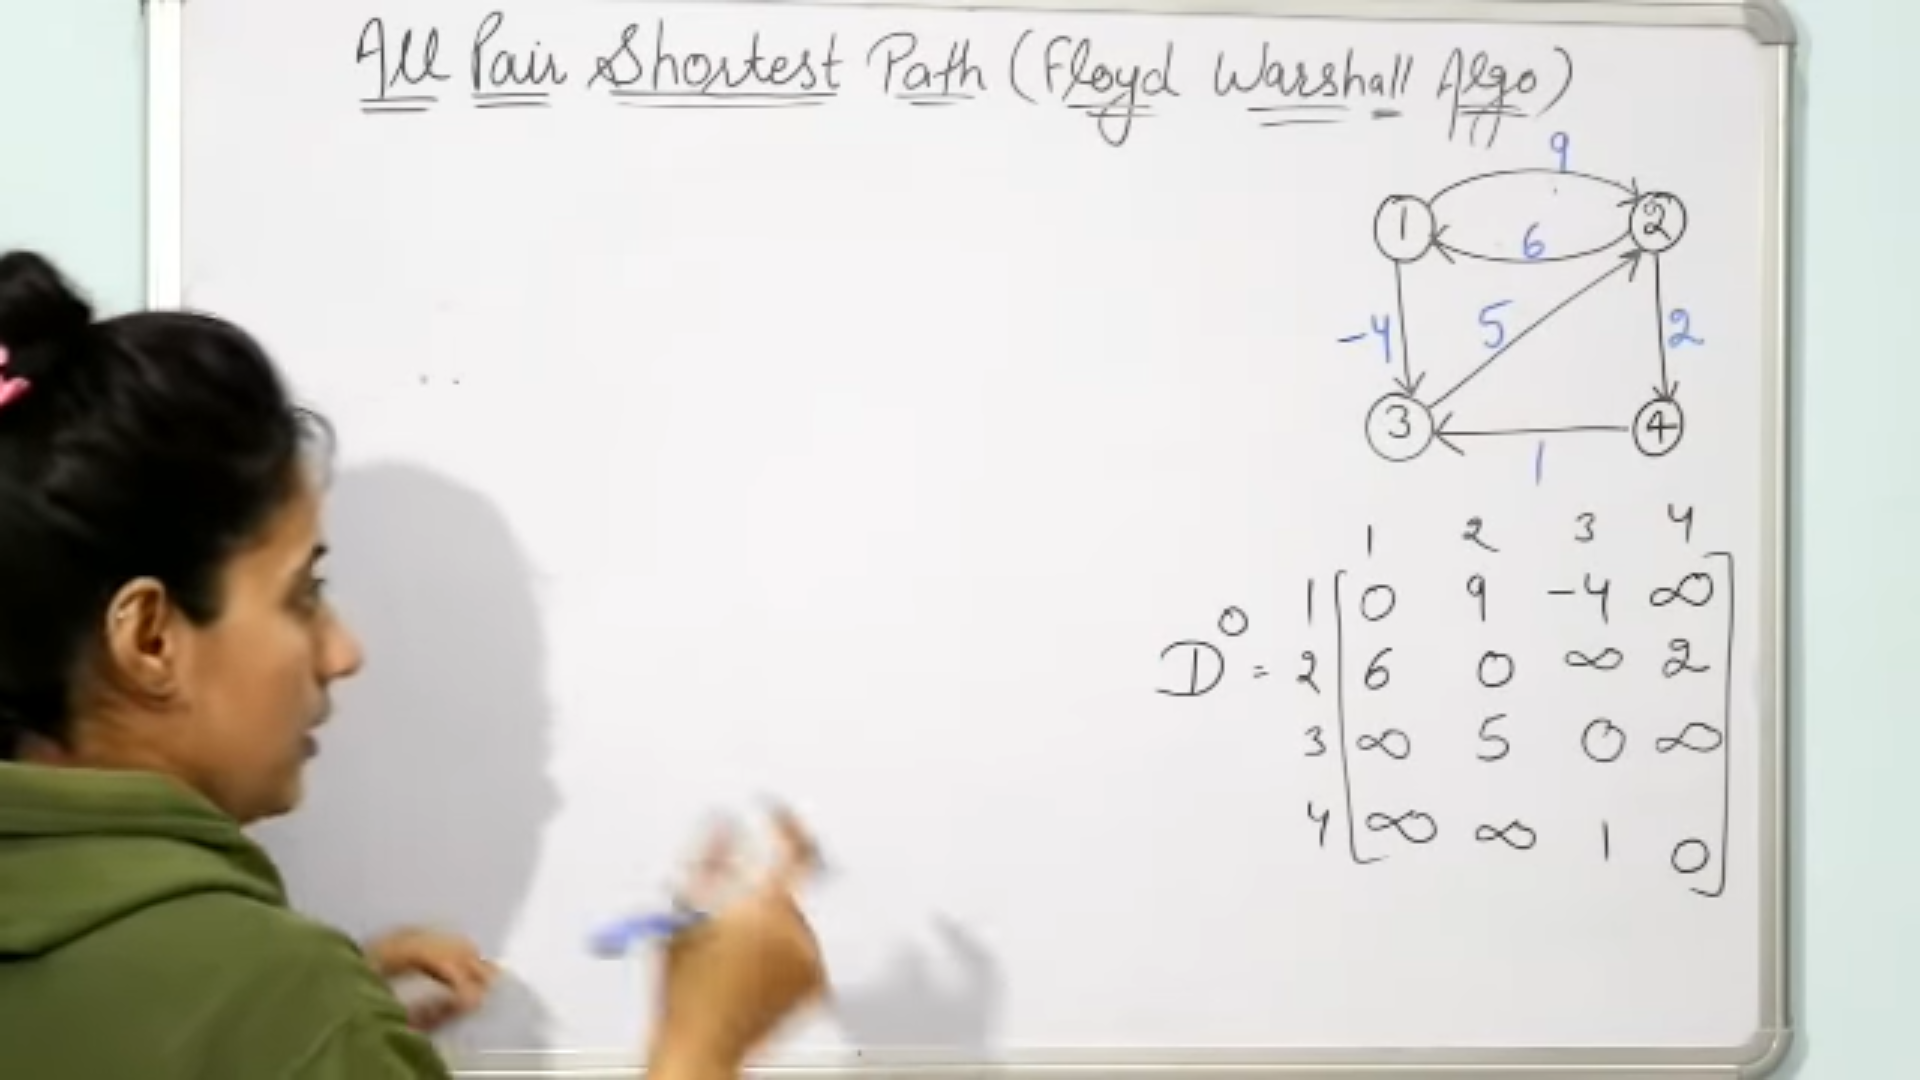 All Pair Shortest Path (Floyd Warshall Algo)
9
1 2
6
-4 5 2
3 4
1
1 2 3 4
1 0 9 -4 ∞
D⁰ = 2 6 0 ∞ 2
3 ∞ 5 0 ∞
4 ∞ ∞ 1 0